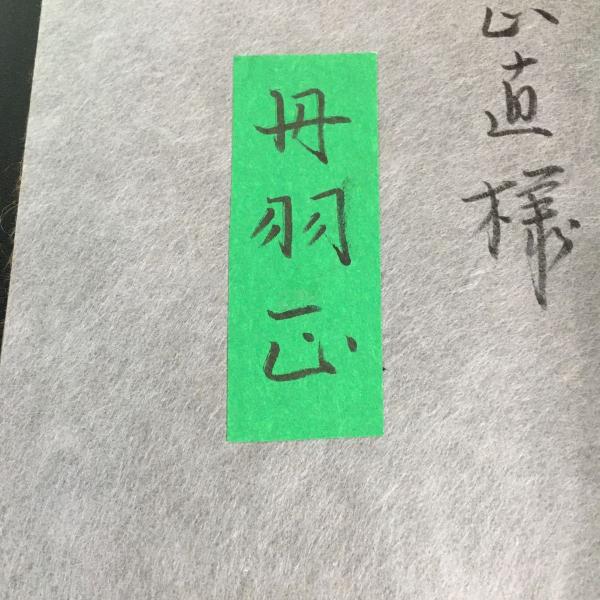 正直様
丹羽正